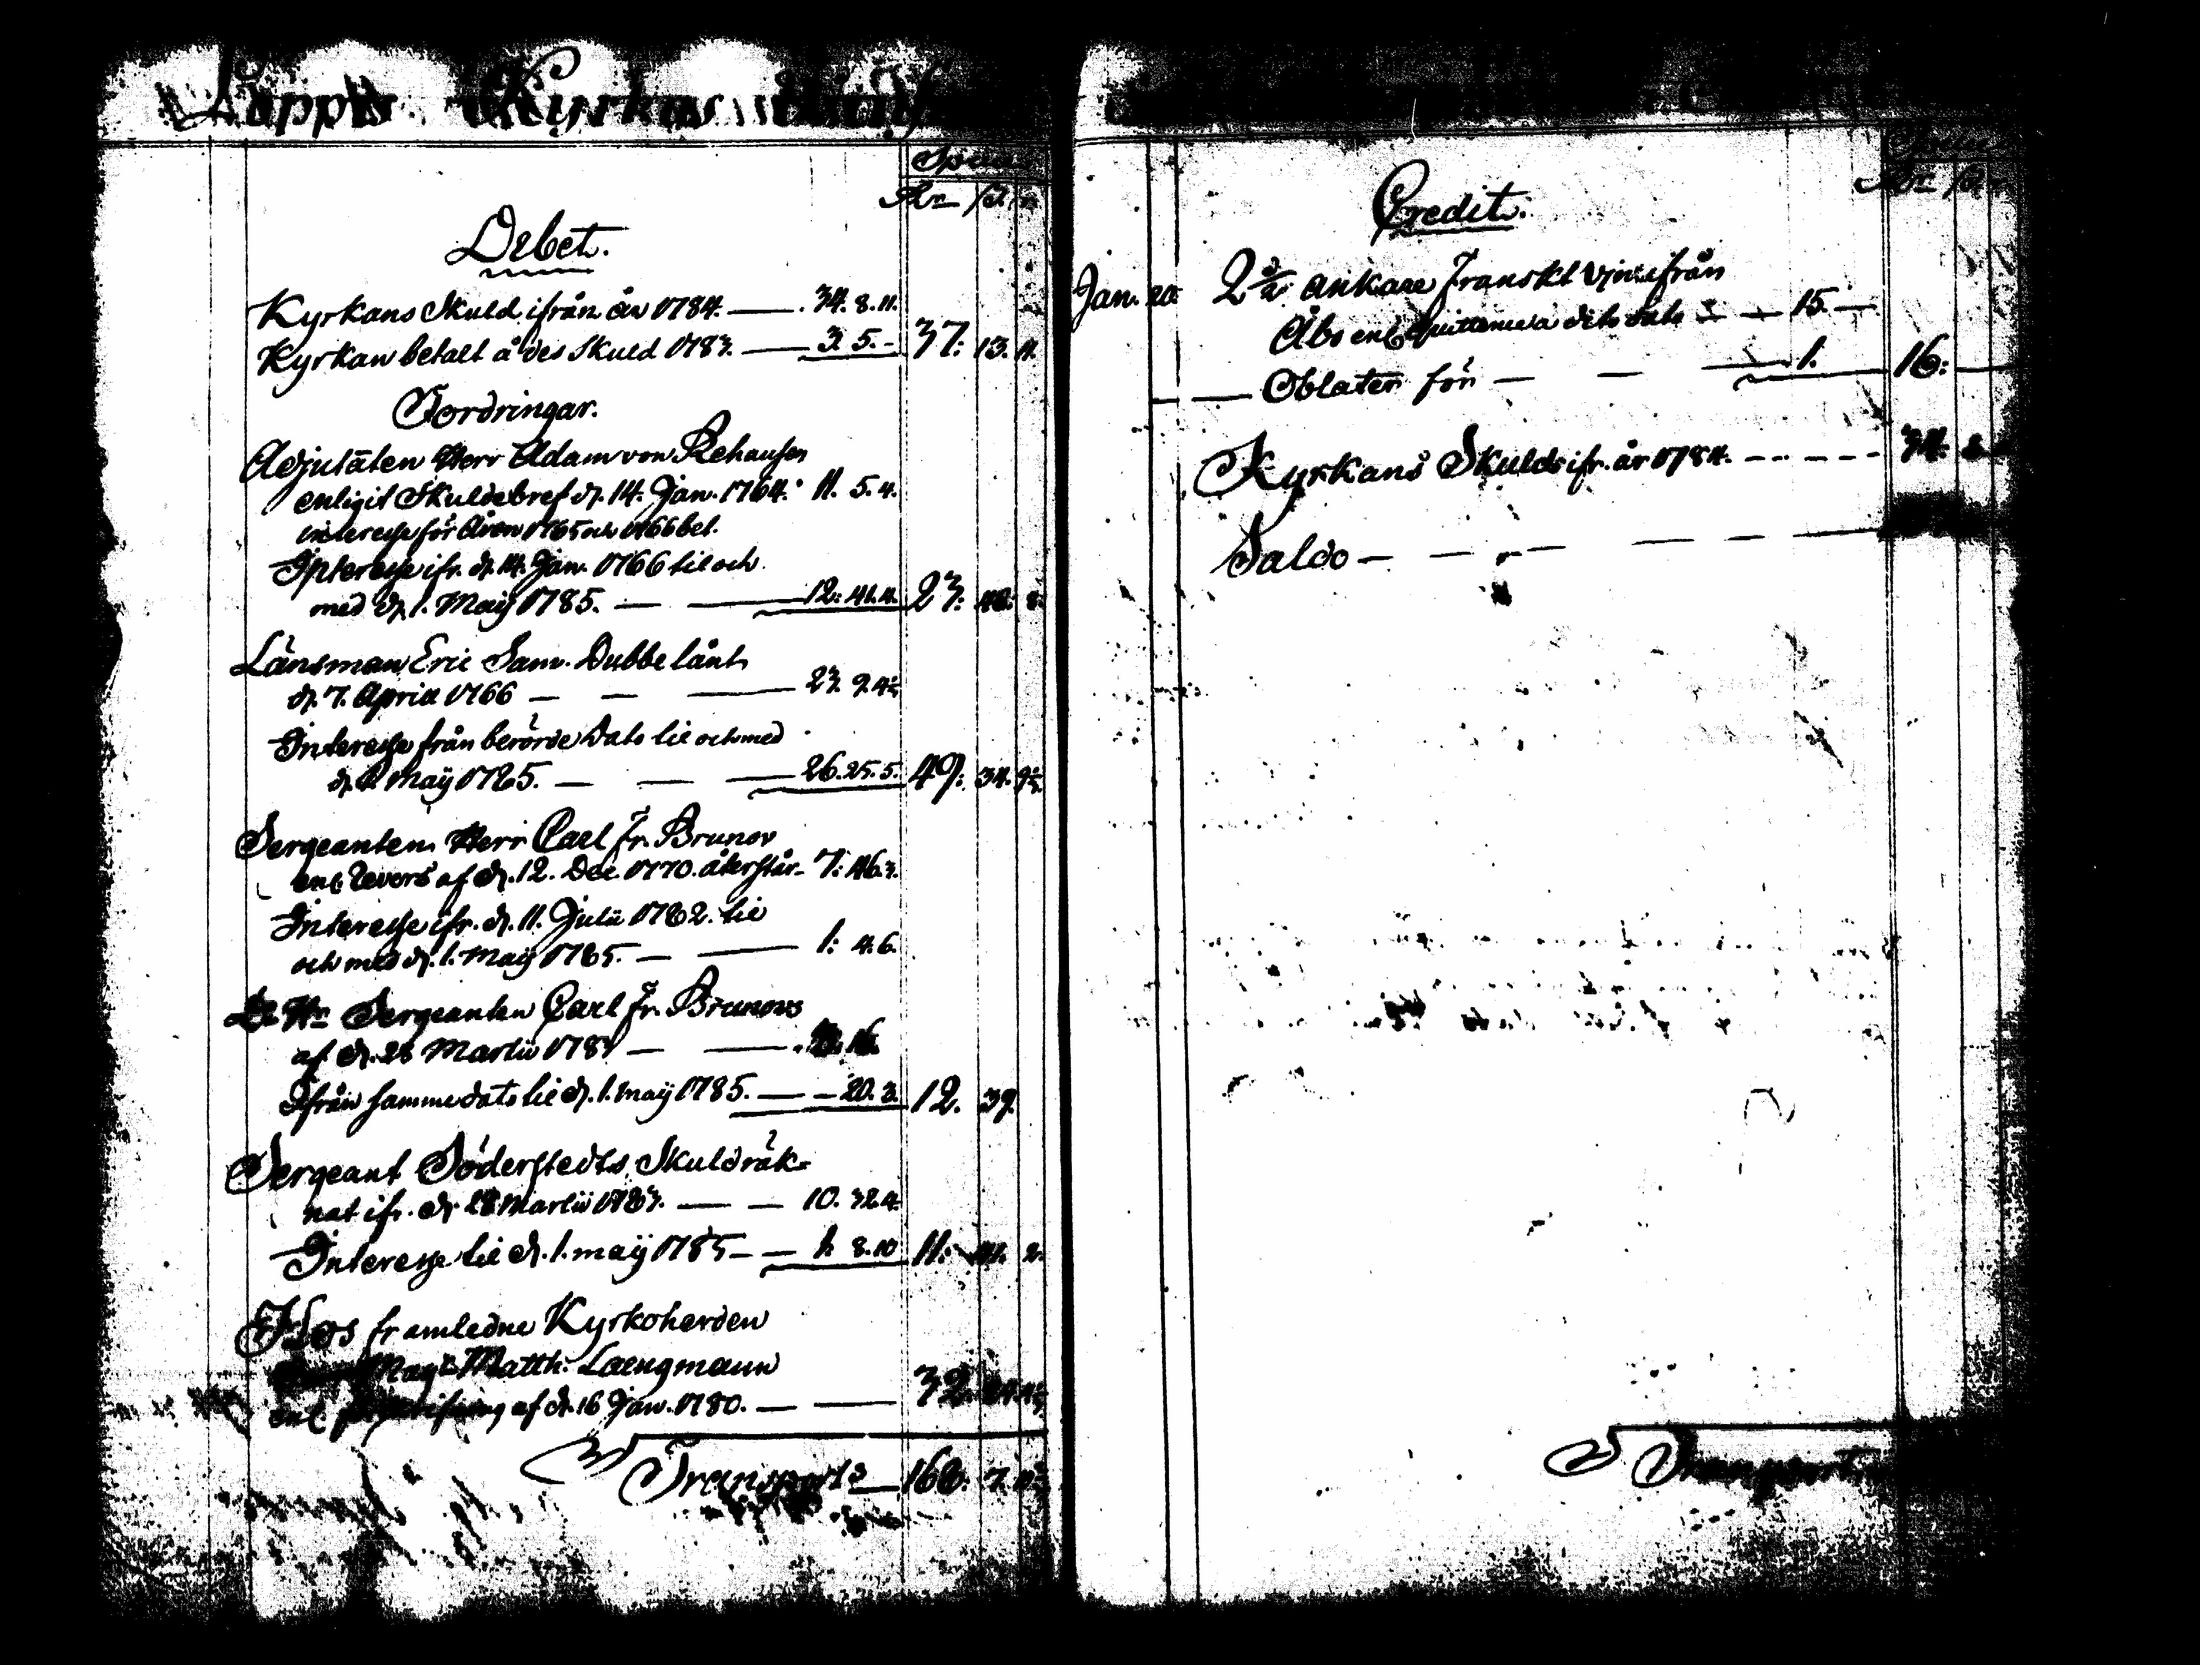 Lappo Kyrkas
Specie
Rdr sk. r.
Debet.
Kyrkans Skuld ifrån år 1784. — 34. 8. 11.
Kyrkan betalt å des skuld 1783. — 3. 5. - 37: 13. 11.
Fordringar.
Adjutäten Herr Adam von Rehausen
enligit Skuldebref d. 14. Jan. 1764. 11. 5. 4.
interesse för åren 1765 och 1766 bet.
Interesse ifr. d. 14. Jan. 1766 til och
med d. 1. Maij 1785. — — 12: 41. 4. 23: 46. 8.
Länsman Eric Sam. Dubbe lånt
d. 7. April 1766 — — — 23. 9. 4
Interesse från berörde dato til och med
d. 1. Maij 1785. — — — 26. 25. 5. 49: 34. 9
Sergeanten Herr Carl Fr. Brunov
enl. revers af d. 12. Dec. 1770. återstår 7: 46. 3.
Interesse ifr. d. 11. Julii 1782. til
och med d. 1. Maij 1785. — — 1: 4. 6.
Sergeanten Carl Fr. Brunovs
af d. 28 Martii 178 — —
Ifrån samme dato til d. 1. maij 1785. — — 20. 3. 12. 39.
Sergeant Söderstedts Skuld räk-
nat ifr. d. 28 Martii 1783. — — 10. 32. 4.
Interesse til d. 1. maij 1785 — — 1. 8. 10 11: 41. 2.
Hos framledne Kyrkoherden
Mag. Matth. Laengmann
enl. af d. 16 Jan. 1780. — — 32.
Transport — 168. 7.
Rdr
Credit.
Jan. 20. 2 ankare Franskt vin ifrån
Åbo enl. quittence a dito dato — — 15. —
— — Oblater för — — — 1. 16: —
Kyrkans Skuld ifr. år 1784. - - - - - 34. 8.
Saldo — — — — — —
Transport